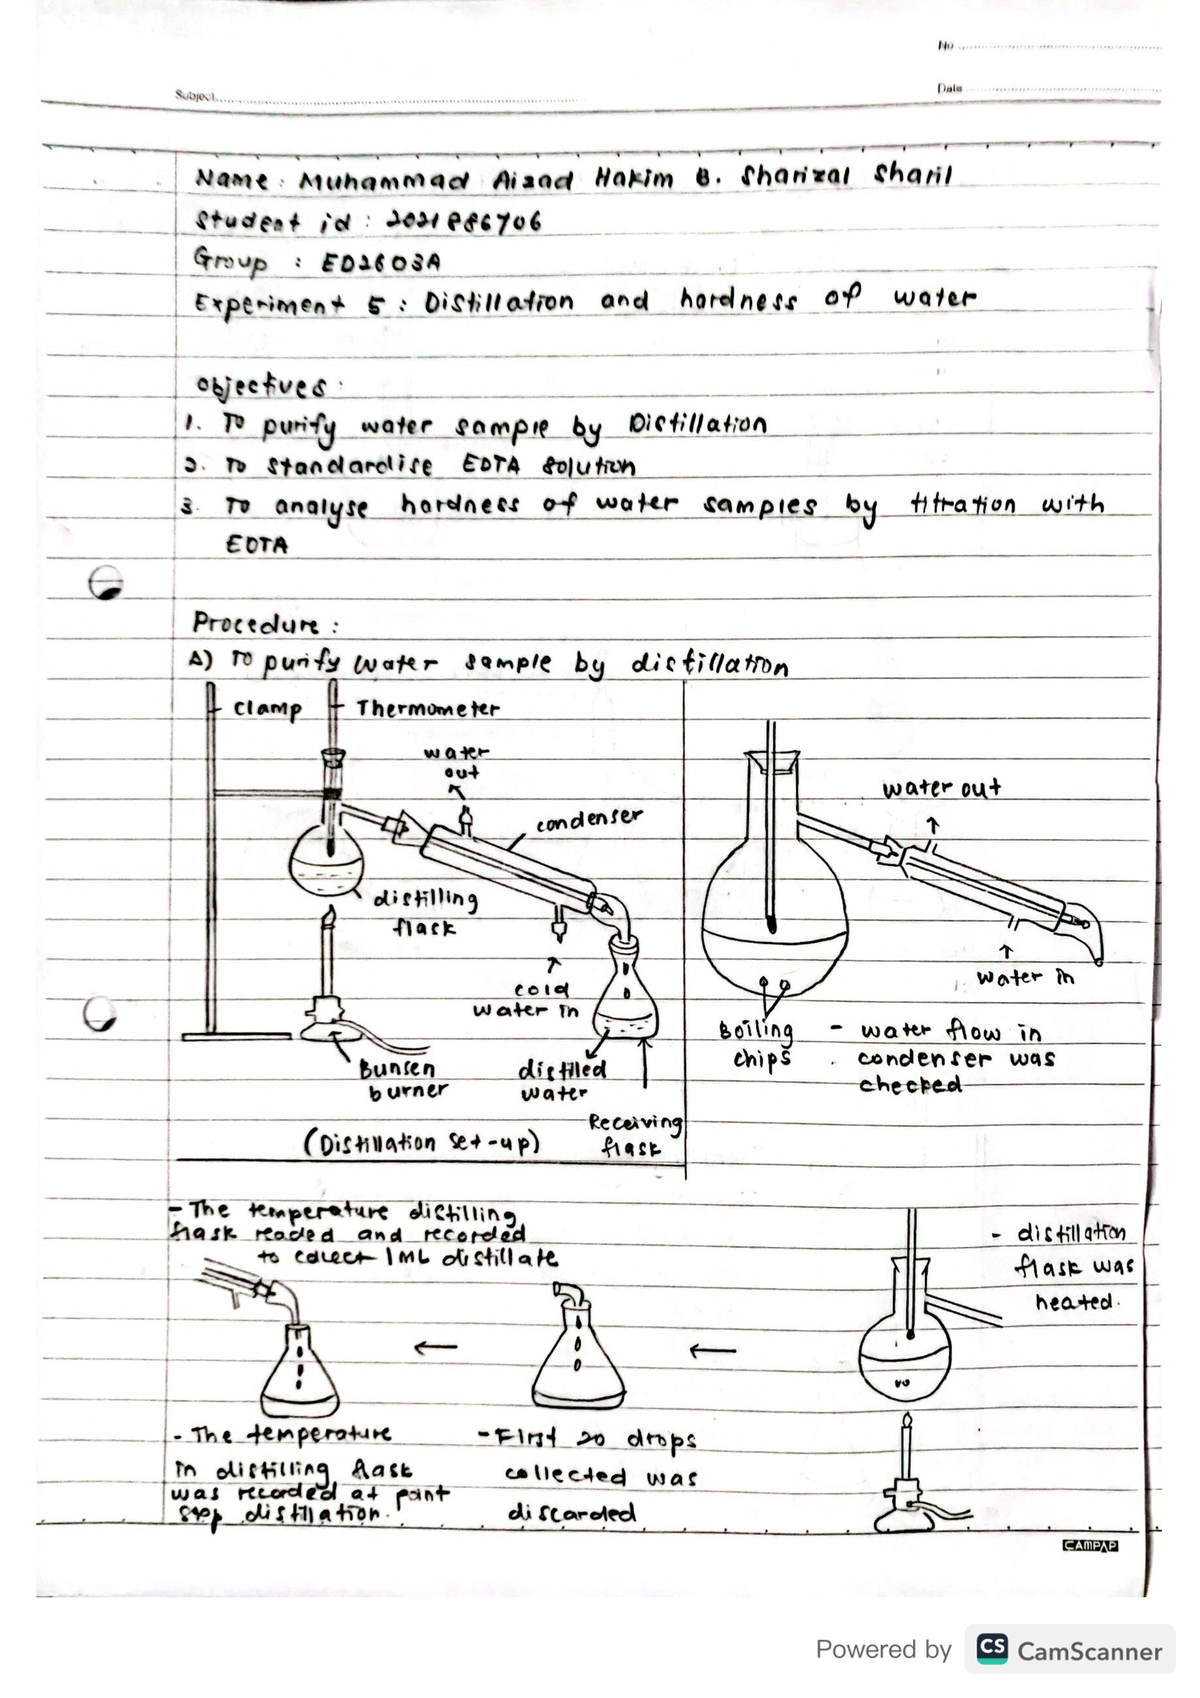 No
Subject
Date
Name : Muhammad Aizad Hakim B. Sharizal Sharil
Student id : 2021886706
Group : ED2603A
Experiment 5 : Distillation and hardness of water
Objectives :
1. To purify water sample by Distillation
2. To standardise EDTA solution
3. To analyse hardness of water samples by titration with
EDTA
Procedure :
A) To purify water sample by distillation
clamp
Thermometer
water
out
condenser
distilling
flask
cold
water in
Bunsen
burner
distiled
water
Receiving
flask
(Distillation set-up)
water out
water in
Boiling
chips
- water flow in
condenser was
checked
- The temperature distilling
flask readed and recorded
to collect 1 mL distillate
- distillation
flask was
heated.
- The temperature
in distilling flask
was recorded at point
stop distillation.
- First 20 drops
collected was
discarded
CAMPAP
Powered by CS CamScanner